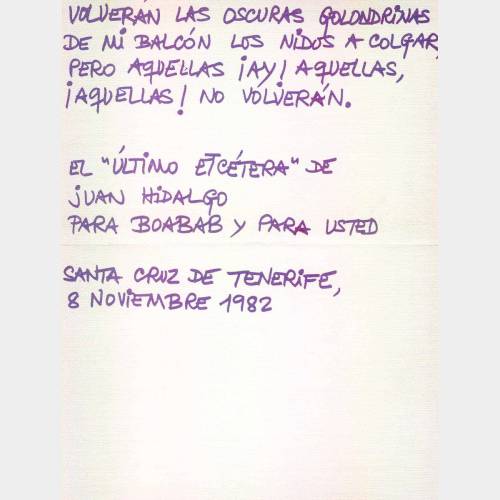 VOLVERÁN LAS OSCURAS GOLONDRINAS
DE Mi BALCÓN LOS NIDOS A COLGAR,
PERO AQUELLAS ¡AY! AQUELLAS,
¡AQUELLAS! NO VOLVERÁN.
EL "ÚLTIMO ETCÉTERA" DE
JUAN HIDALGO
PARA BOABAB Y PARA USTED
SANTA CRUZ DE TENERIFE,
8 NOVIEMBRE 1982